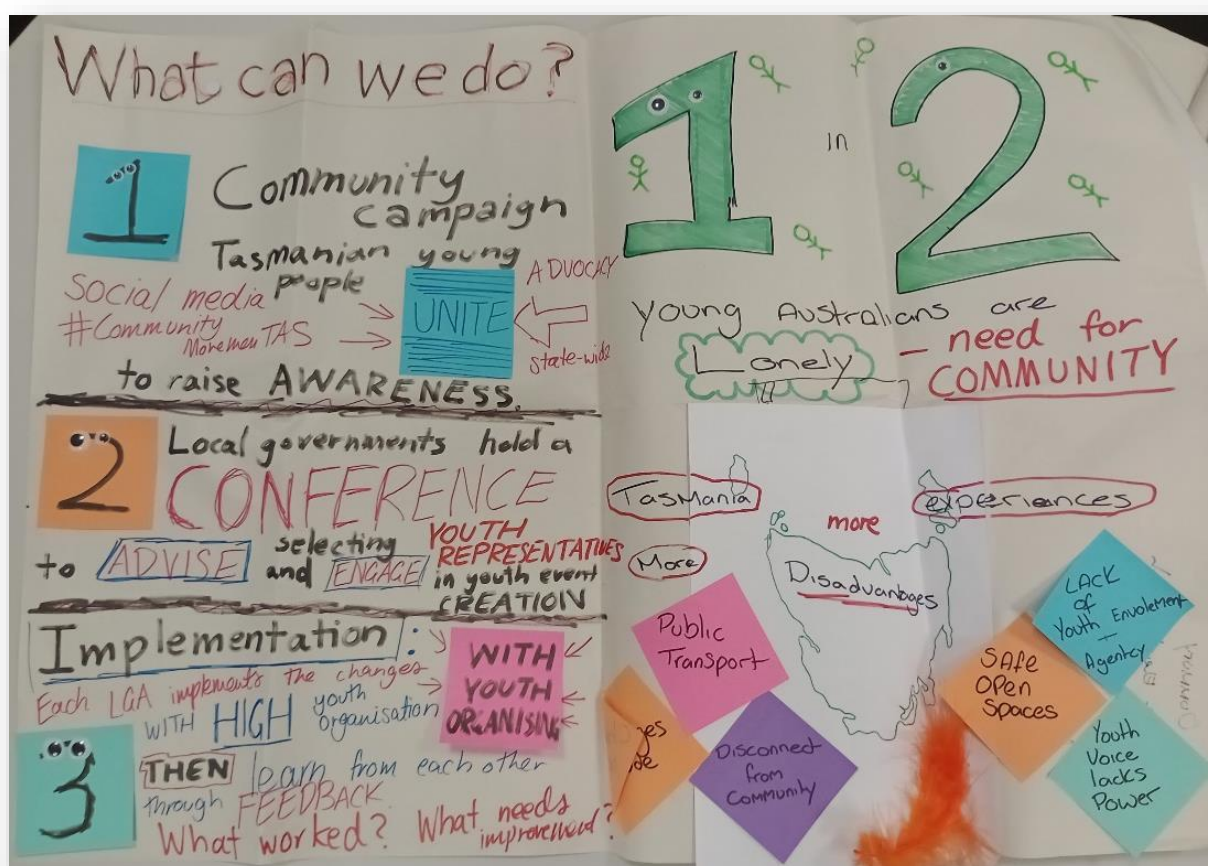 What can we do?
1
Community
campaign
Tasmanian young
people
Social media
#Community
MovemenTAS
UNITE
ADVOCACY
state-wide
to raise AWARENESS.
2
Local governments hold a
CONFERENCE
to ADVISE and selecting
ENGAGE
YOUTH
REPRESENTATIVES
in youth event
CREATION
Implementation:
Each LGA implements the changes
WITH HIGH youth
organisation
WITH
YOUTH
ORGANISING
3
THEN learn from each other
through FEEDBACK
What worked? What needs
improvement?
1 in 2
young Australians are
Lonely
- need for
COMMUNITY
Tasmania
experiences
more
More
Disadvantages
Public
Transport
Disconnect
from
Community
LACK
of
Youth Envolement
+
Agency
SAfe
OPen
Spaces
Youth
Voice
lacks
Power